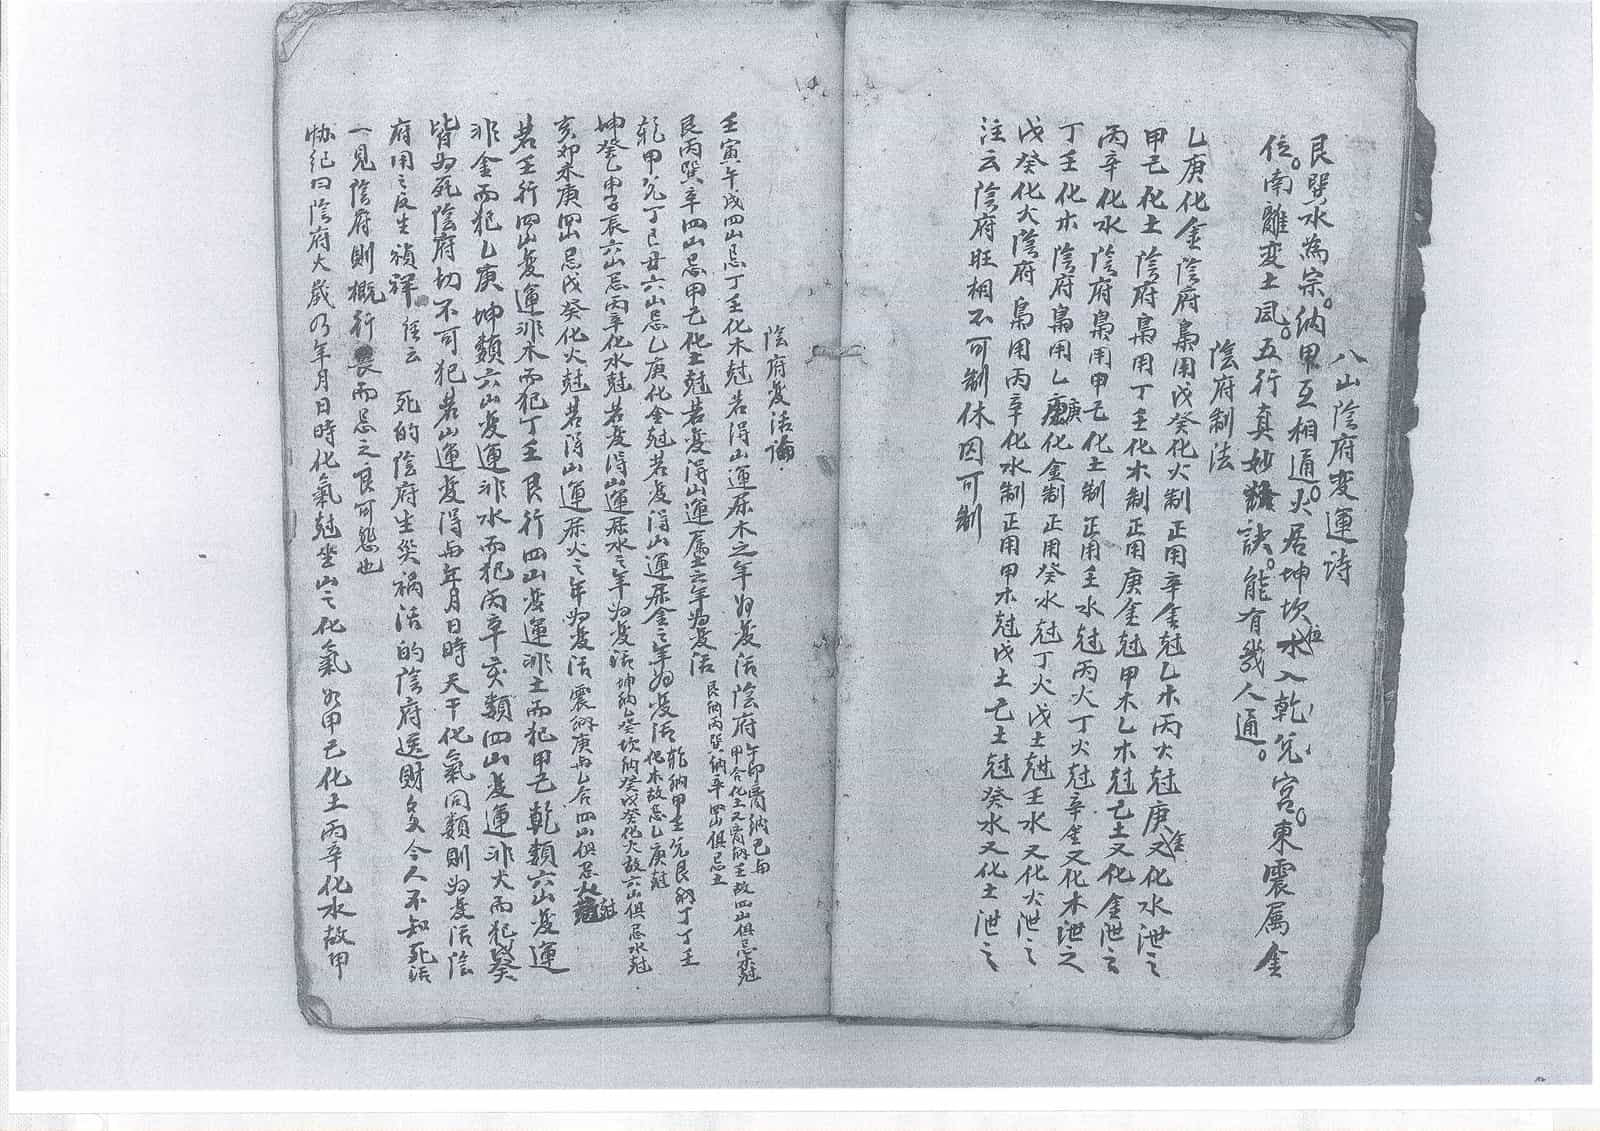 八山陰府变運诗
艮巽水為宗。納甲互相通。火居坤坎位。水入乾兑宮。東震属金
位。南離变土風。五行真妙訣。能有幾人通。
陰府制法
乙庚化金陰府梟用戊癸化火制正用辛金尅乙木丙火尅庚金又化水泄之
甲己化土陰府梟用丁壬化木制正用庚金尅甲木乙木尅己土又化金泄之
丙辛化水陰府梟用甲己化土制正用壬水尅丙火丁火尅辛金又化木泄之
丁壬化木陰府梟用乙庚化金制正用癸水尅丁火戊土尅壬水又化火泄之
戊癸化火陰府梟用丙辛化水制正用甲木尅戊土己土尅癸水又化土泄之
注云陰府旺相不可制休囚可制
陰府变活論
壬寅午戌四山忌丁壬化木尅若得山運属木之年为变活陰府
甲合化土又离納壬故四山俱忌木尅
艮丙巽辛四山忌甲己化土尅若变得山運属土之年为变活艮納丙巽納辛四山俱忌土
乾甲兑丁巳丑六山忌乙庚化金尅若变得山運属金之年为变活乾納甲壬兑艮納丁丁壬
化木故忌乙庚尅
坤癸乙申子辰六山忌丙辛化水尅若变得山運属水之年为变活坤納乙癸坎納癸戊癸化火故六山俱忌水尅
亥卯未庚四山忌戊癸化火尅若得山運属火之年为变活震納庚与乙合四山俱忌火尅
若壬行四山变運非木而犯丁壬艮行四山变運非土而犯甲己乾類六山变運
非金而犯乙庚坤類六山变運非水而犯丙辛亥類四山变運非火而犯戊癸
皆为死陰府切不可犯若山運变得与年月日時天干化氣同類則为变活陰
府用之反生禎祥 徃云 死的陰府生災禍活的陰府送財多今人不知死活
一見陰府則概行畏而忌之良可怨也
协纪曰陰府大歲乃年月日時化氣尅坐山之化氣如甲己化土丙辛化水故甲